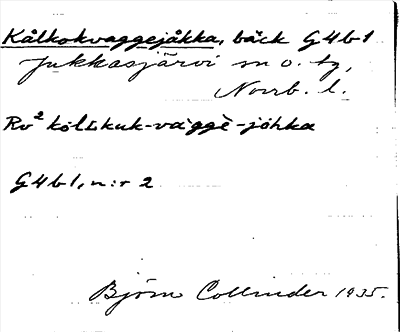 Kålkokvaggejåkka, bäck G4b1
Jukkasjärvi sn o. tg,
Norrb. l.
Rv² kålkuk-vàggè-jåhka
G4b1, n:r 2
Björn Collinder 1935.